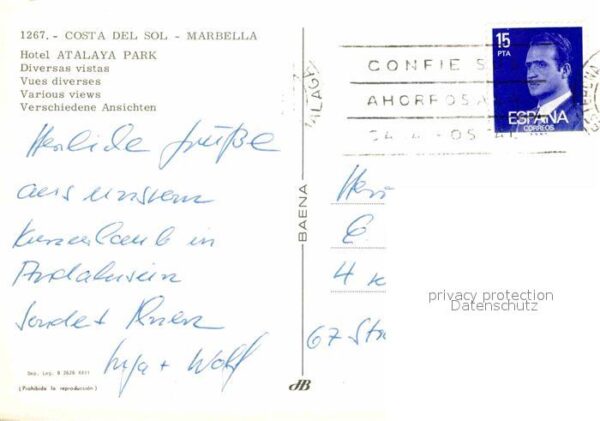 1267.- COSTA DEL SOL - MARBELLA
Hotel ATALAYA PARK
Diversas vistas
Vues diverses
Various views
Verschiedene Ansichten
Herzliche Grüße
aus unserem
Kurzurlaub in
Andalusien
sendet Ihnen
Inga + Wolf
Dep. Leg. B 2626 XXII
(Prohibida la reproducción)
BAENA
MALAGA
CONFIE S
AHORROS A
CAJA POSTAL
15
PTA
ESPAÑA
CORREOS
Herr
E
4 K
67 Str
privacy protection
Datenschutz